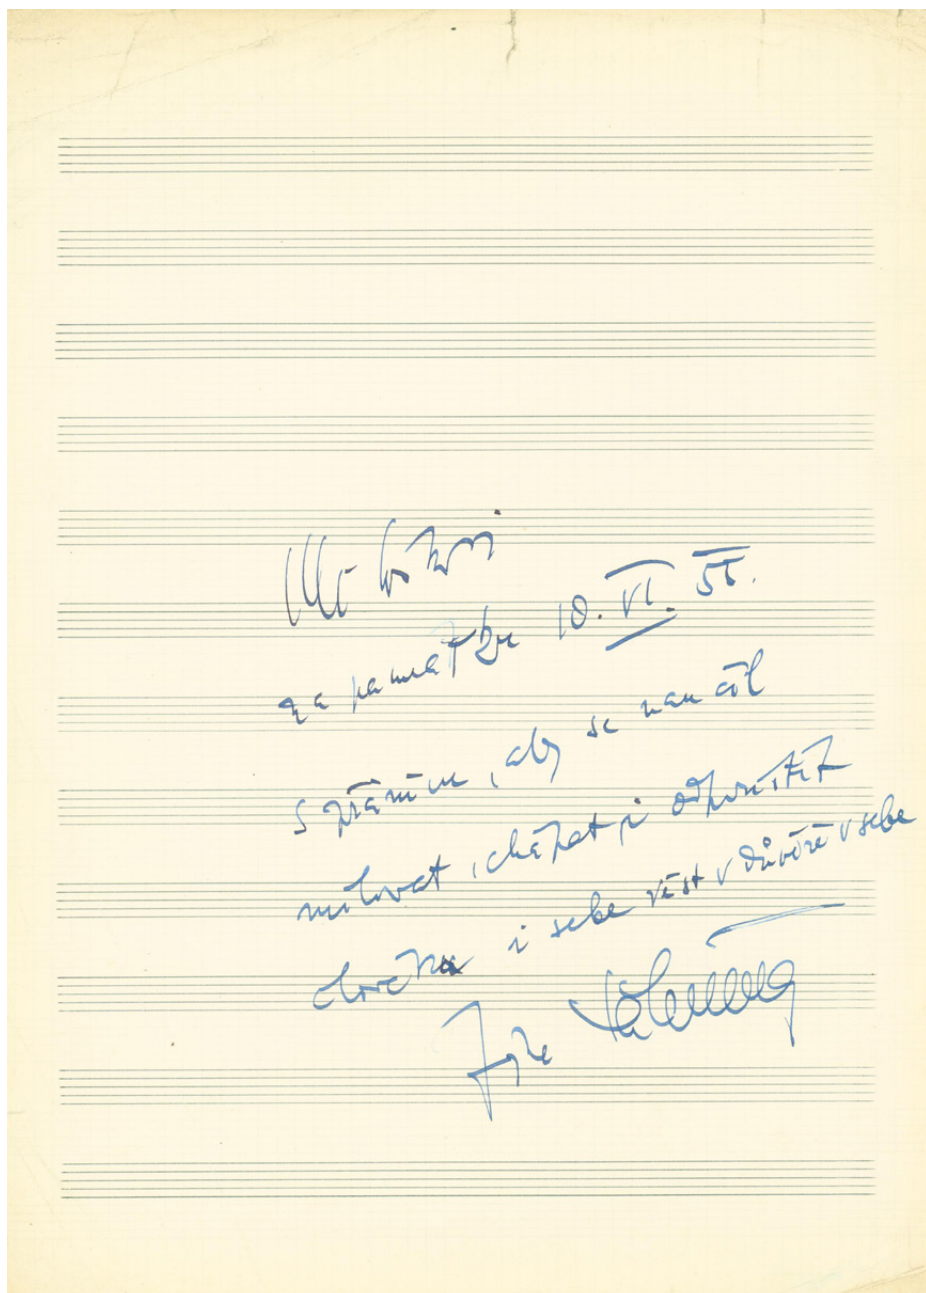 na památku 10. VI. 55.
s přáním, aby se naučil
milovat, chápat i odpouštět
člověku i sebe vést v důvěře v sebe